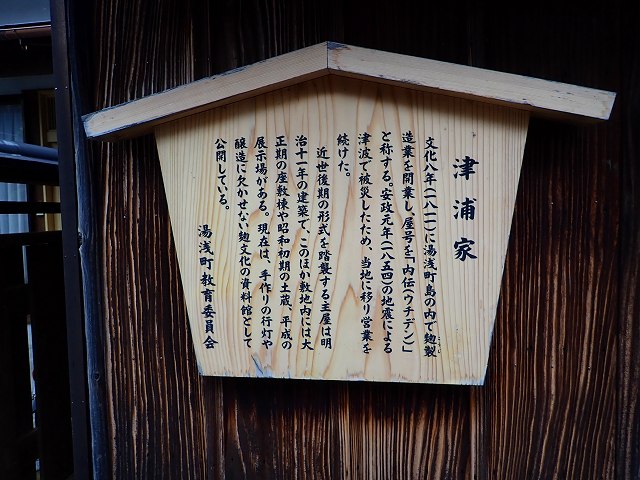 津浦家
文化八年(一八一一)に湯浅町島の内で麹製
造業を開業し、屋号を「内伝(ウチデン)」
と称する。安政元年(一八五四)の地震による
津波で被災したため、当地に移り営業を
続けた。
近世後期の形式を踏襲する主屋は明
治十一年の建築で、このほか敷地内には大
正期の座敷棟や昭和初期の土蔵、平成の
展示場がある。現在は、手作りの行灯や
醸造に欠かせない麹文化の資料館として
公開している。
湯浅町教育委員会